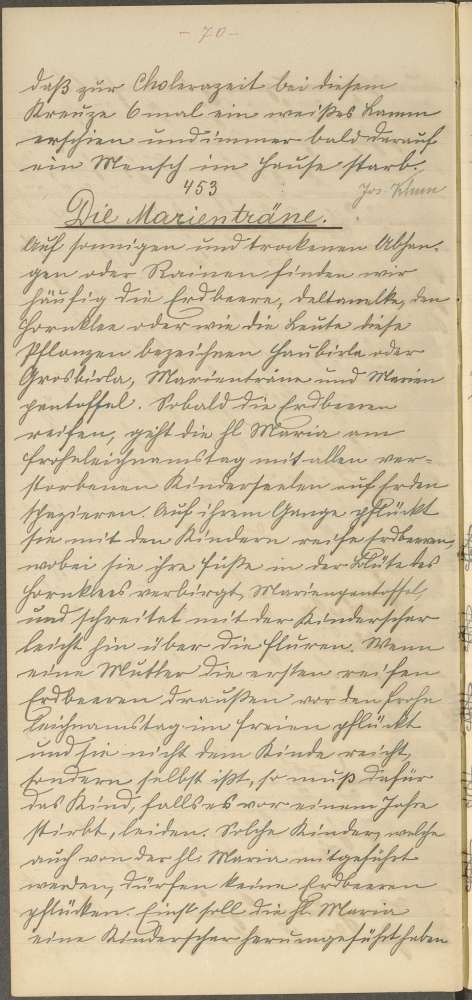 - 70 -
daß zur Cholerazeit bei diesem
Kreuze 6 mal ein weißes Lamm
erschien und immer bald darauf
ein Mensch im Hause starb.
453 Jos. Thum
Die Marienträne.
Auf sonnigen und trockenen Abhän-
gen oder Rainen finden wir
häufig die Erdbeere, deltanelke, den
Hornklee oder wie die Leute diese
Pflanzen bezeichnen Haubirla oder
Grosbirla, Marienträne und Marien
pantoffel. Sobald die Erdbeeren
reifen, geht die hl Maria am
Frohnleichnamstag mit allen ver-
storbenen Kinderseelen auf Erden
spazieren. Auf ihrem Gange pflückt
sie mit den Kindern reife Erdbeeren,
wobei sie ihre Füße in der Blüte des
Hornklees verbirgt, Marienpantoffel,
und schreitet mit der Kinderschar
leicht hin über die Fluren. Wenn
eine Mutter die ersten reifen
Erdbeeren draußen vor den Frohn
leichnamstag im Freien pflückt
und sie nicht dem Kinde reicht,
sondern selbst ißt, so muß dafür
das Kind, falls es vor einem Jahre
stirbt, leiden. Solche Kinder, welche
auch von der hl. Maria mitgeführt
werden, dürfen keine Erdbeeren
pflücken. Einst soll die hl. Maria
eine Kinderschar herumgeführt haben